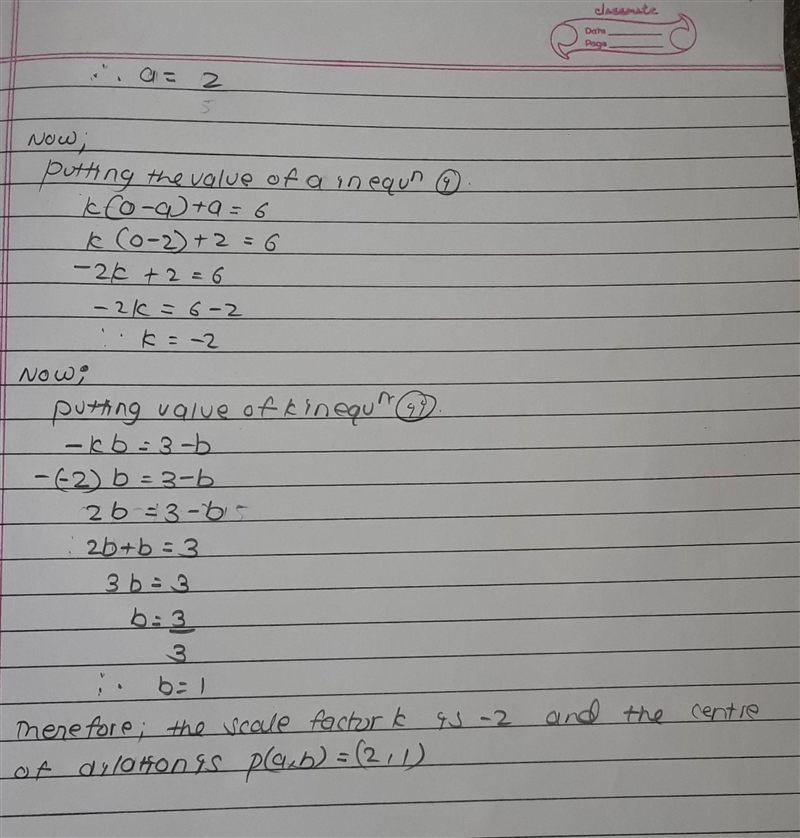 classmate
Date
Page
∴ a = 2
5
Now;
putting the value of a in equⁿ (i).
k(0-a)+a = 6
k (0-2)+2 = 6
-2k + 2 = 6
-2k = 6-2
∴ k = -2
Now;
putting value of k in equⁿ (ii).
-kb = 3-b
-(-2) b = 3-b
2b = 3-b
2b+b = 3
3b = 3
b = 3
3
∴ b = 1
Therefore; the scale factor k is -2 and the centre
of dilation is p(a,b) = (2, 1)